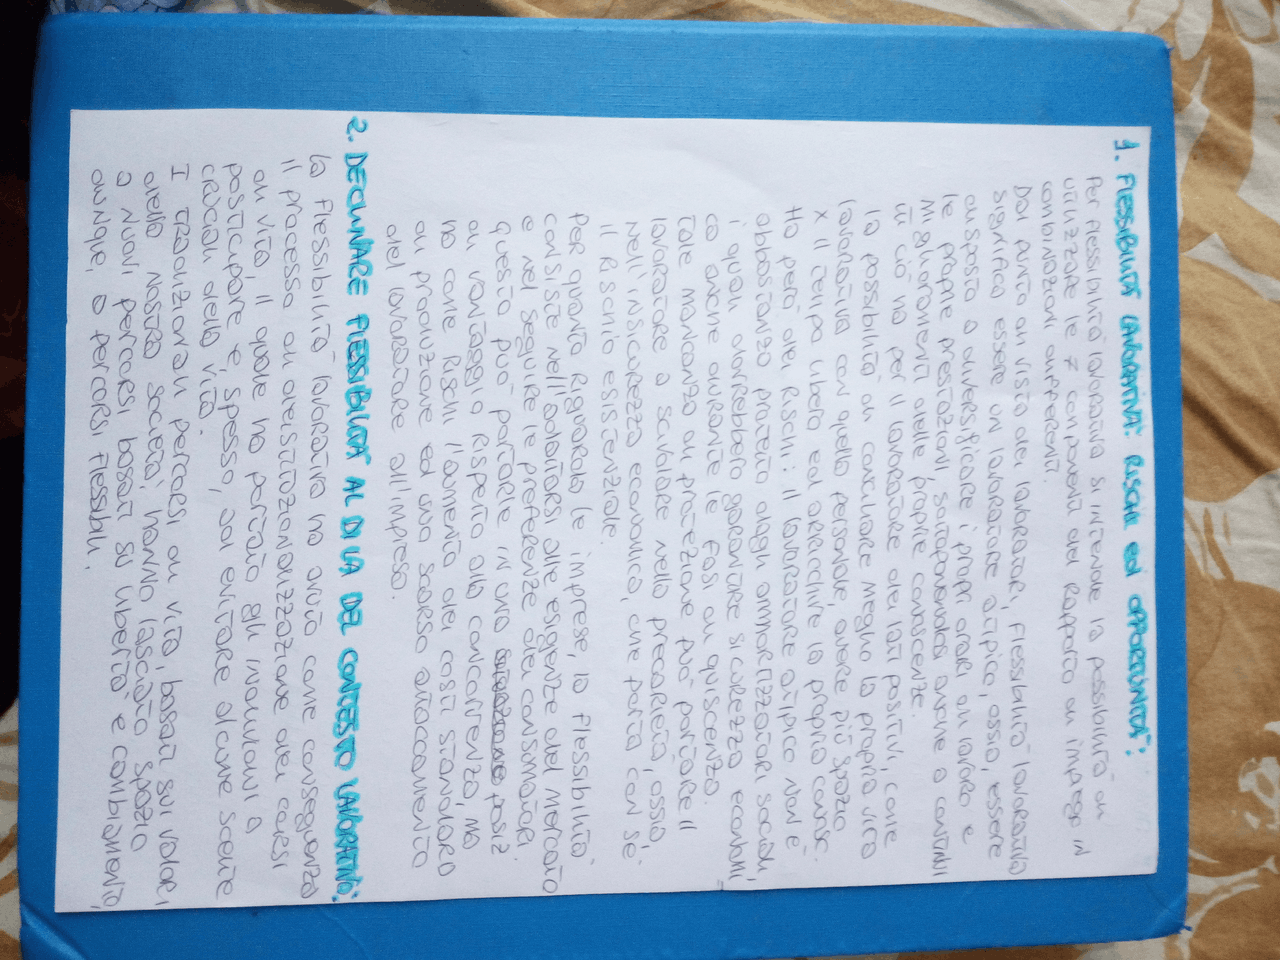 1. FLESSIBILITÀ LAVORATIVA: RISCHI ED OPPORTUNITÀ:
Per flessibilità lavorativa si intende la possibilità di
utilizzare le 7 componenti del rapporto di impiego in
combinazioni differenti.
Dal punto di vista dei lavoratori, flessibilità lavorativa
significa essere un lavoratore atipico, ossia, essere
disposto a diversificare i propri orari di lavoro e
le proprie prestazioni, sottoponendosi anche a continui
miglioramenti delle proprie conoscenze.
Ciò ha per il lavoratore dei lati positivi, come
la possibilità di conciliare meglio la propria vita
lavorativa con quella personale, avere più spazio
x il tempo libero ed arricchire la propria conosc.
Ha però dei rischi: il lavoratore atipico non è
abbastanza protetto dagli ammortizzatori sociali,
i quali dovrebbero garantire sicurezza economi_
ca anche durante le fasi di quiscenza.
Tale mancanza di protezione può portare il
lavoratore a scivolare nella precarietà, ossia,
nell'insicurezza economica, che porta con sé
il rischio esistenziale.
Per quanto riguarda le imprese, la flessibilità
consiste nell'adattarsi alle esigenze del mercato
e nel seguire le preferenze dei consumatori.
Questo può portare in una posiz
di vantaggio rispetto alla concorrenza, ma
ha come rischi l'aumento dei costi standard
di produzione ed uno scarso attaccamento
del lavoratore all'impresa.
2. DECLINARE FLESSIBILITÀ AL DI LA DEL CONTESTO LAVORATIVO:
la flessibilità lavorativa ha avuto come conseguenza
il processo di deistituzionalizzazione dei corsi
di vita, il quale ha portato gli individui a
posticipare e, spesso, ad evitare alcune scelte
cruciali della vita.
I tradizionali percorsi di vita, basati sui valori
della nostra società, hanno lasciato spazio
a nuovi percorsi basati su libertà e cambiamento,
ovvero, a percorsi flessibili.